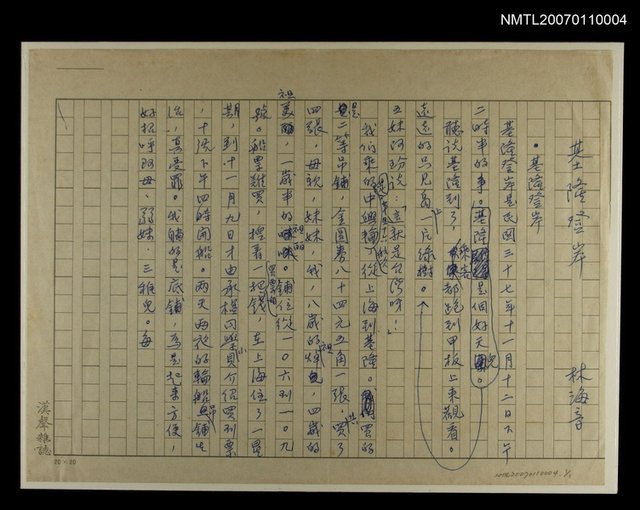 NMTL20070110004
基隆登岸 林海音
基隆登岸
基隆登岸是民國三十七年十一月十二日下午
二時半的事。基隆是個好天兒。
聽說基隆到了,乘客都跑到甲板上來觀看。
遠遠的只見島上一片綠樹。
五妹阿玢說:這就是台灣呀!
我們乘的中興輪從上海到基隆。買的是
二等吊鋪,金圓券八十四元五角一張,買了
四張,母親,妹妹,我,八歲的祖焯,四歲的
祖美,一歲半的祖麗。鋪位從一〇六到一〇九
號。船票難買,揹著一把錢,在上海住了一星
期,到十一月九日才由承楹同學貝小介紹買到票
,十號下午四時開船。兩天兩夜的輪船吊鋪生
活,真受罪。我躺的是底鋪,為是起來方便,
好招呼阿母、弱妹、三稚兒。每
漢聲雜誌
20×20
NMTL20070110004